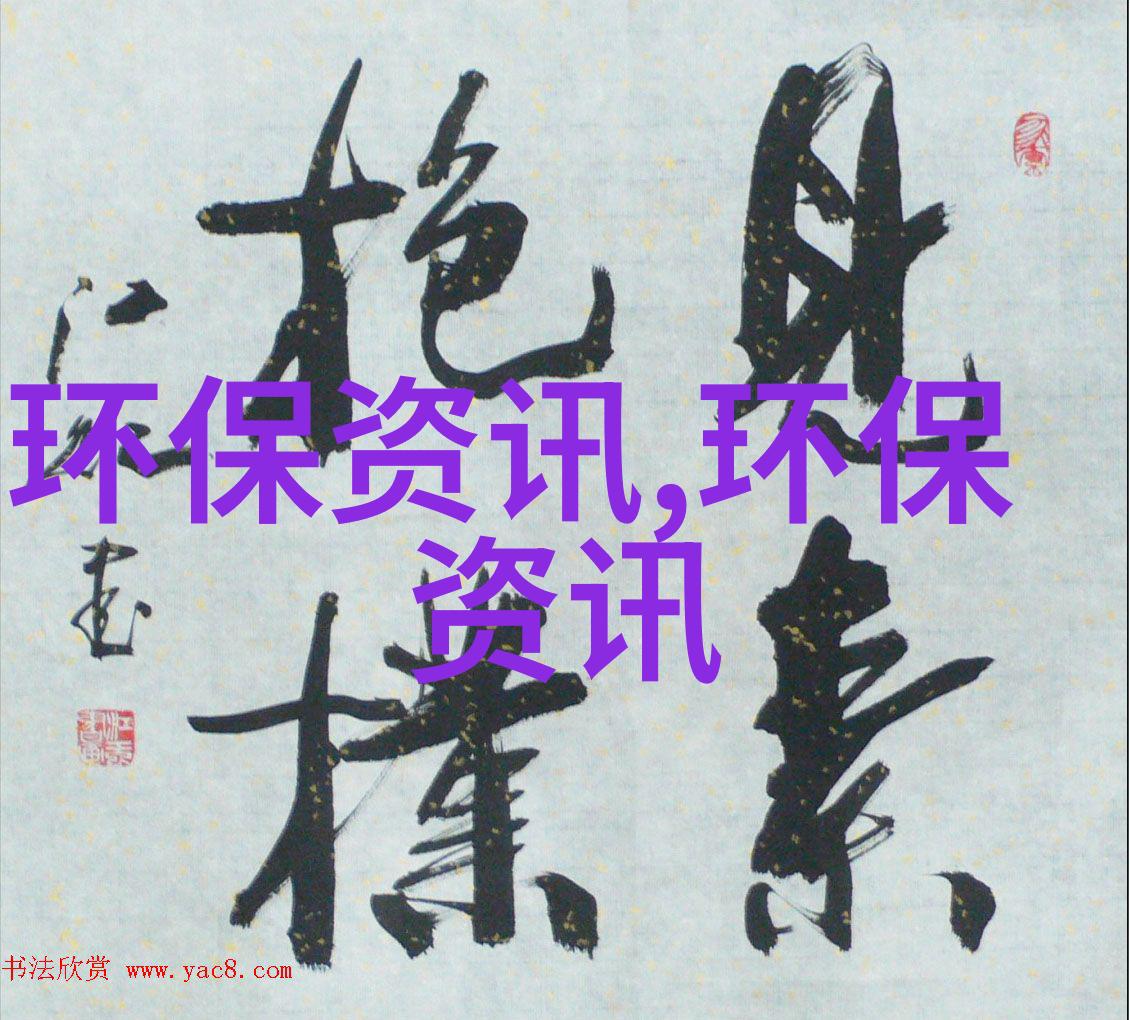 見素
抱樸
环保资讯,环保
资讯
书法欣赏 www.yac8.com